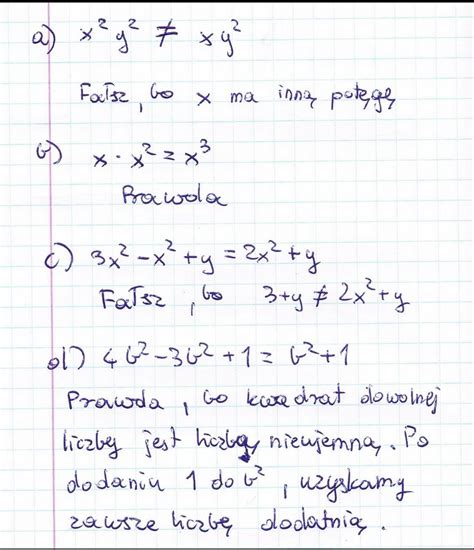 a) x² y² ≠ xy²
Fałsz, bo x ma inną potęgę
b) x · x² = x³
Prawda
c) 3x² - x² + y = 2x² + y
Fałsz, bo 3+y ≠ 2x² + y
d) 4b² - 3b² + 1 = b² + 1
Prawda, bo kwadrat dowolnej
liczby jest liczbą nieujemną. Po
dodaniu 1 do b², uzyskamy
zawsze liczbę dodatnią.